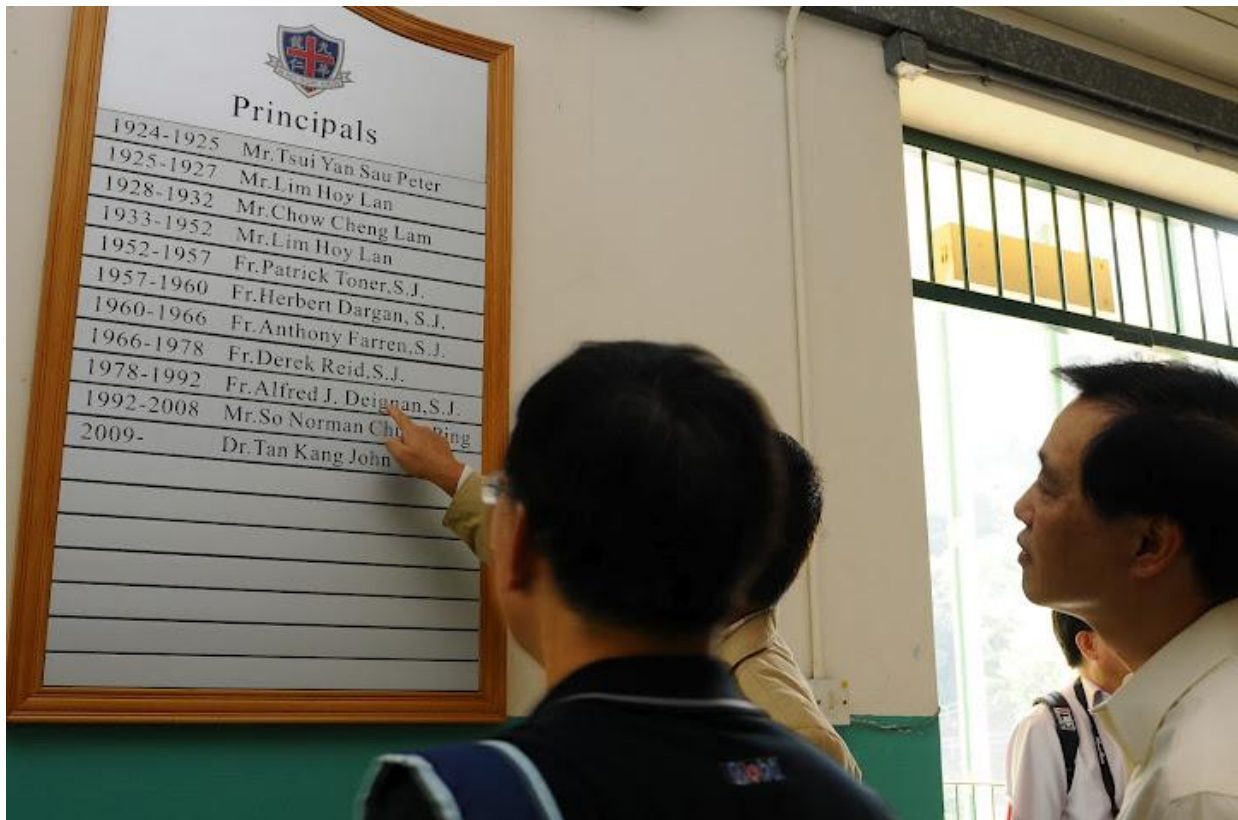 龍 九
仁 華
Principals
1924-1925 Mr.Tsui Yan Sau Peter
1925-1927 Mr.Lim Hoy Lan
1928-1932 Mr.Chow Cheng Lam
1933-1952 Mr.Lim Hoy Lan
1952-1957 Fr.Patrick Toner,S.J.
1957-1960 Fr.Herbert Dargan, S.J.
1960-1966 Fr.Anthony Farren,S.J.
1966-1978 Fr.Derek Reid,S.J.
1978-1992 Fr.Alfred J. Deignan,S.J.
1992-2008 Mr.So Norman
2009- Dr.Tan Kang John
Mobil